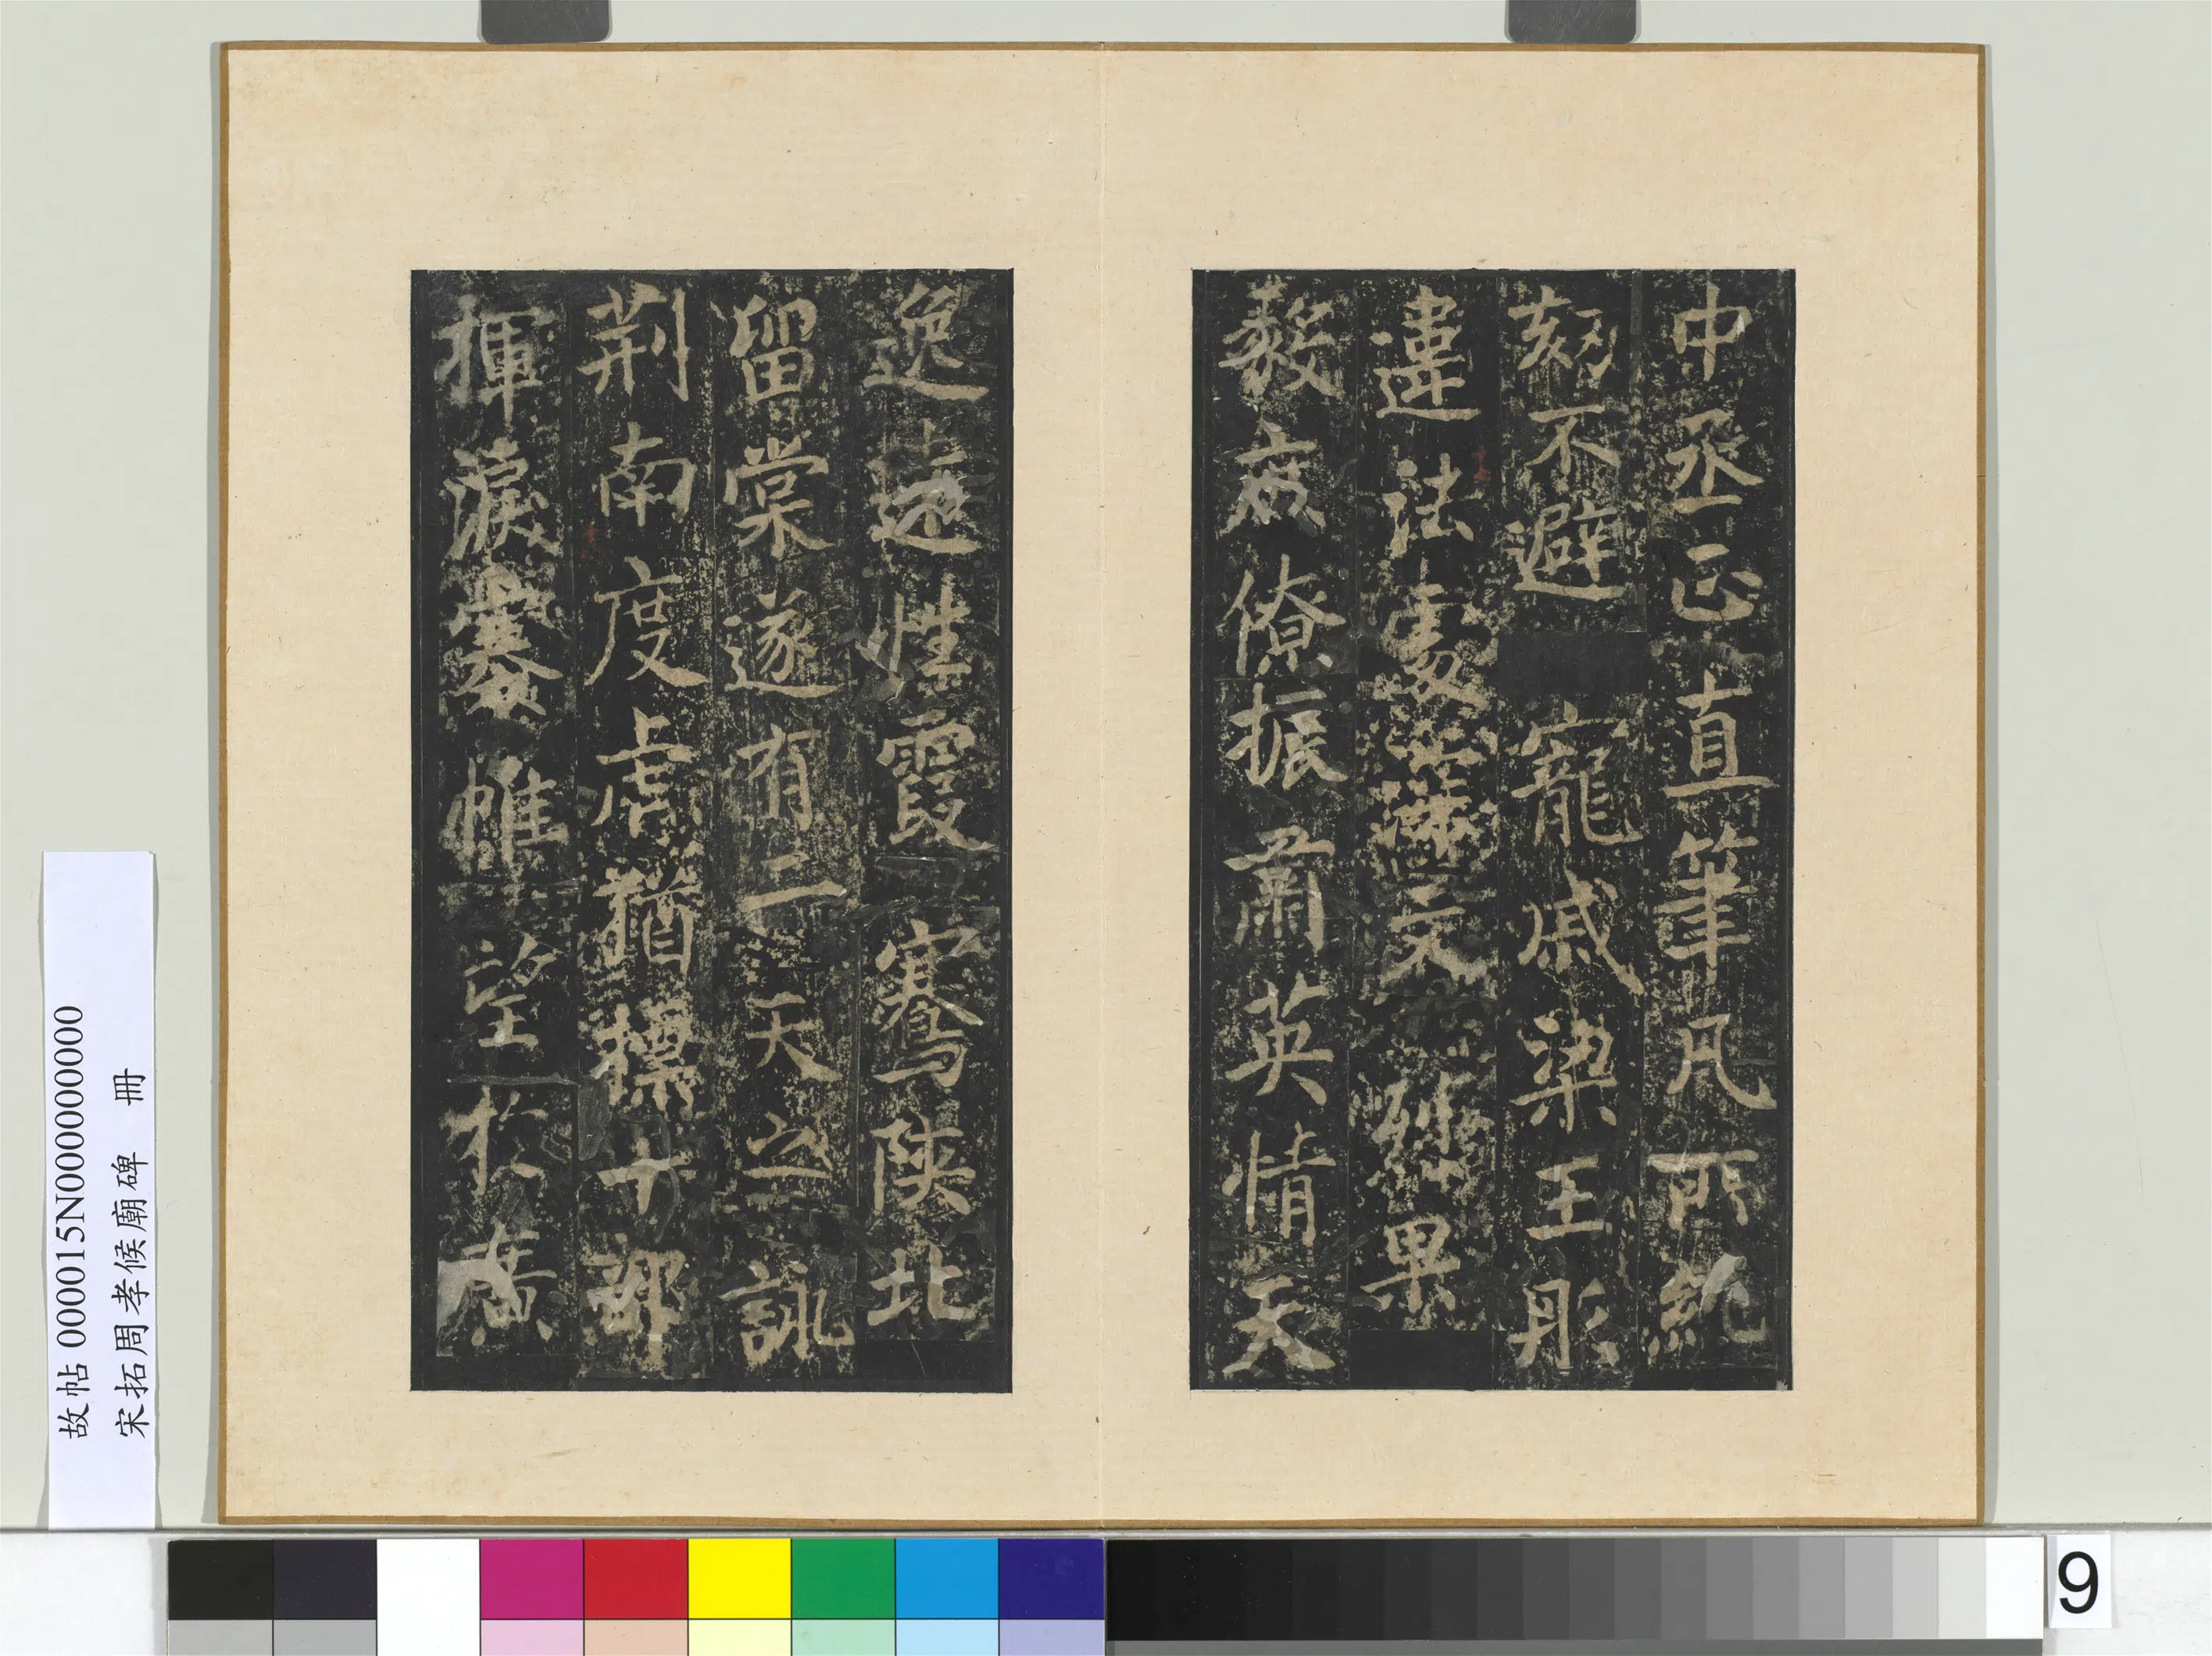 中丞正直筆凡所統
刻不避寵戚梁王肜
違法處深文𢇁果
毅庶僚振肅英情天
逸遠性霞騫陝北
留棠遂有二天之詠
荆南度虎猶標十部
揮淚褰帷望於廣
故帖 000015N000000000
宋拓周孝候廟碑 冊
9